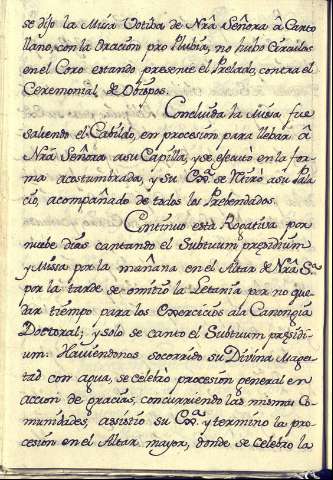 se dijo la Missa Votiba de Nrâ Señora â Canto
llano, con la Oracion pro Plubia, no hubo Circulos
en el Coro estando presente el Prelado, contra el
Ceremonial, de Obispos.
Concluida la Missa fue
saliendo el Cabildo, en procesion para llebar â
Nrâ Señora a su Capilla, y se efecuto en la for-
ma acostumbrada, y Su Ill.ª se retirò a su Pala
cio, acompañado de todos los Prebendados.
Continuo esta Rogativa por
nuebe dias cantando el Subtuum presidium
y Missa por la mañana en el Altar de Nrâ S.ª
por la tarde se omitiò la Letania por no que-
dar tiempo para los Exercicios a la Canongia
Doctoral; y solo se canto el Subtuum presidi-
um. Haviendonos socorrido su Divina Mages-
tad con agua, se celebrò procesion general en
accion de gracias, concurriendo las mismas Co-
munidades, assistiò su Ill.ª y termino la pro-
cesion en el Altar mayor, donde se celebro la